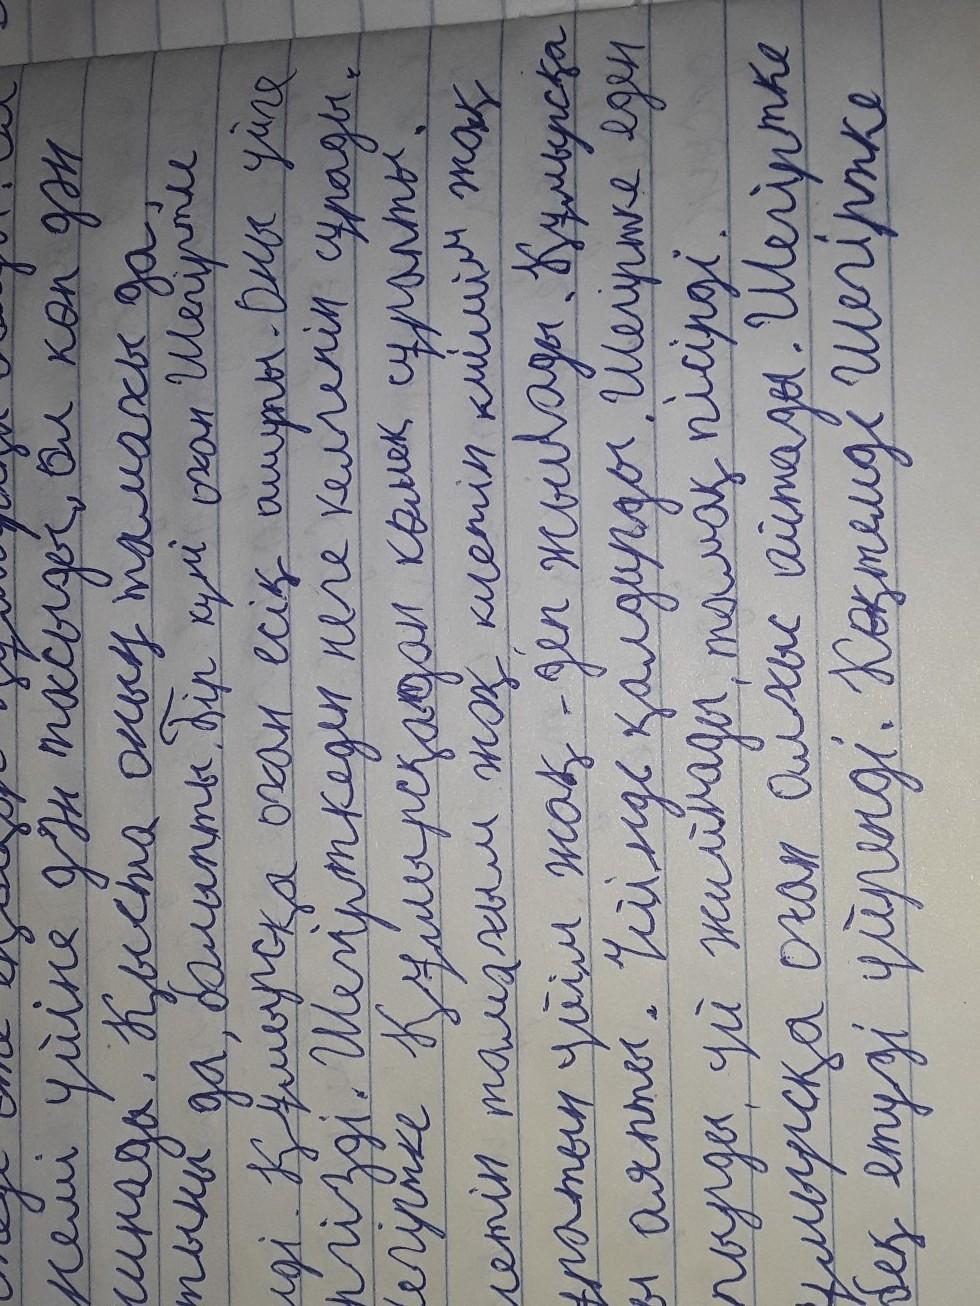 үйіне дән тасыды, Ол көп дән
жинады. Қыста оның тамағы да,
да, болыпты. Бір күні оған Шегіртке
Құмырсқа оған есік ашты. Оны үйге
кіргізді. Шегірткеден неге келгенін сұрады.
Шегіртке Құмырсқадан көмек сұрапты.
Жейтін тамағым жоқ киетін киімім жоқ
тұратын үйім жоқ - деп жылады. Құмырсқа
аяпты. Үйінде қалдырды. Шегіртке еден
сыпырды, үй жинады, тамақ пісірді.
Құмырсқа оған алғыс айтады. Шегіртке
еңбек етуді үйренді. Көктемде Шегіртке